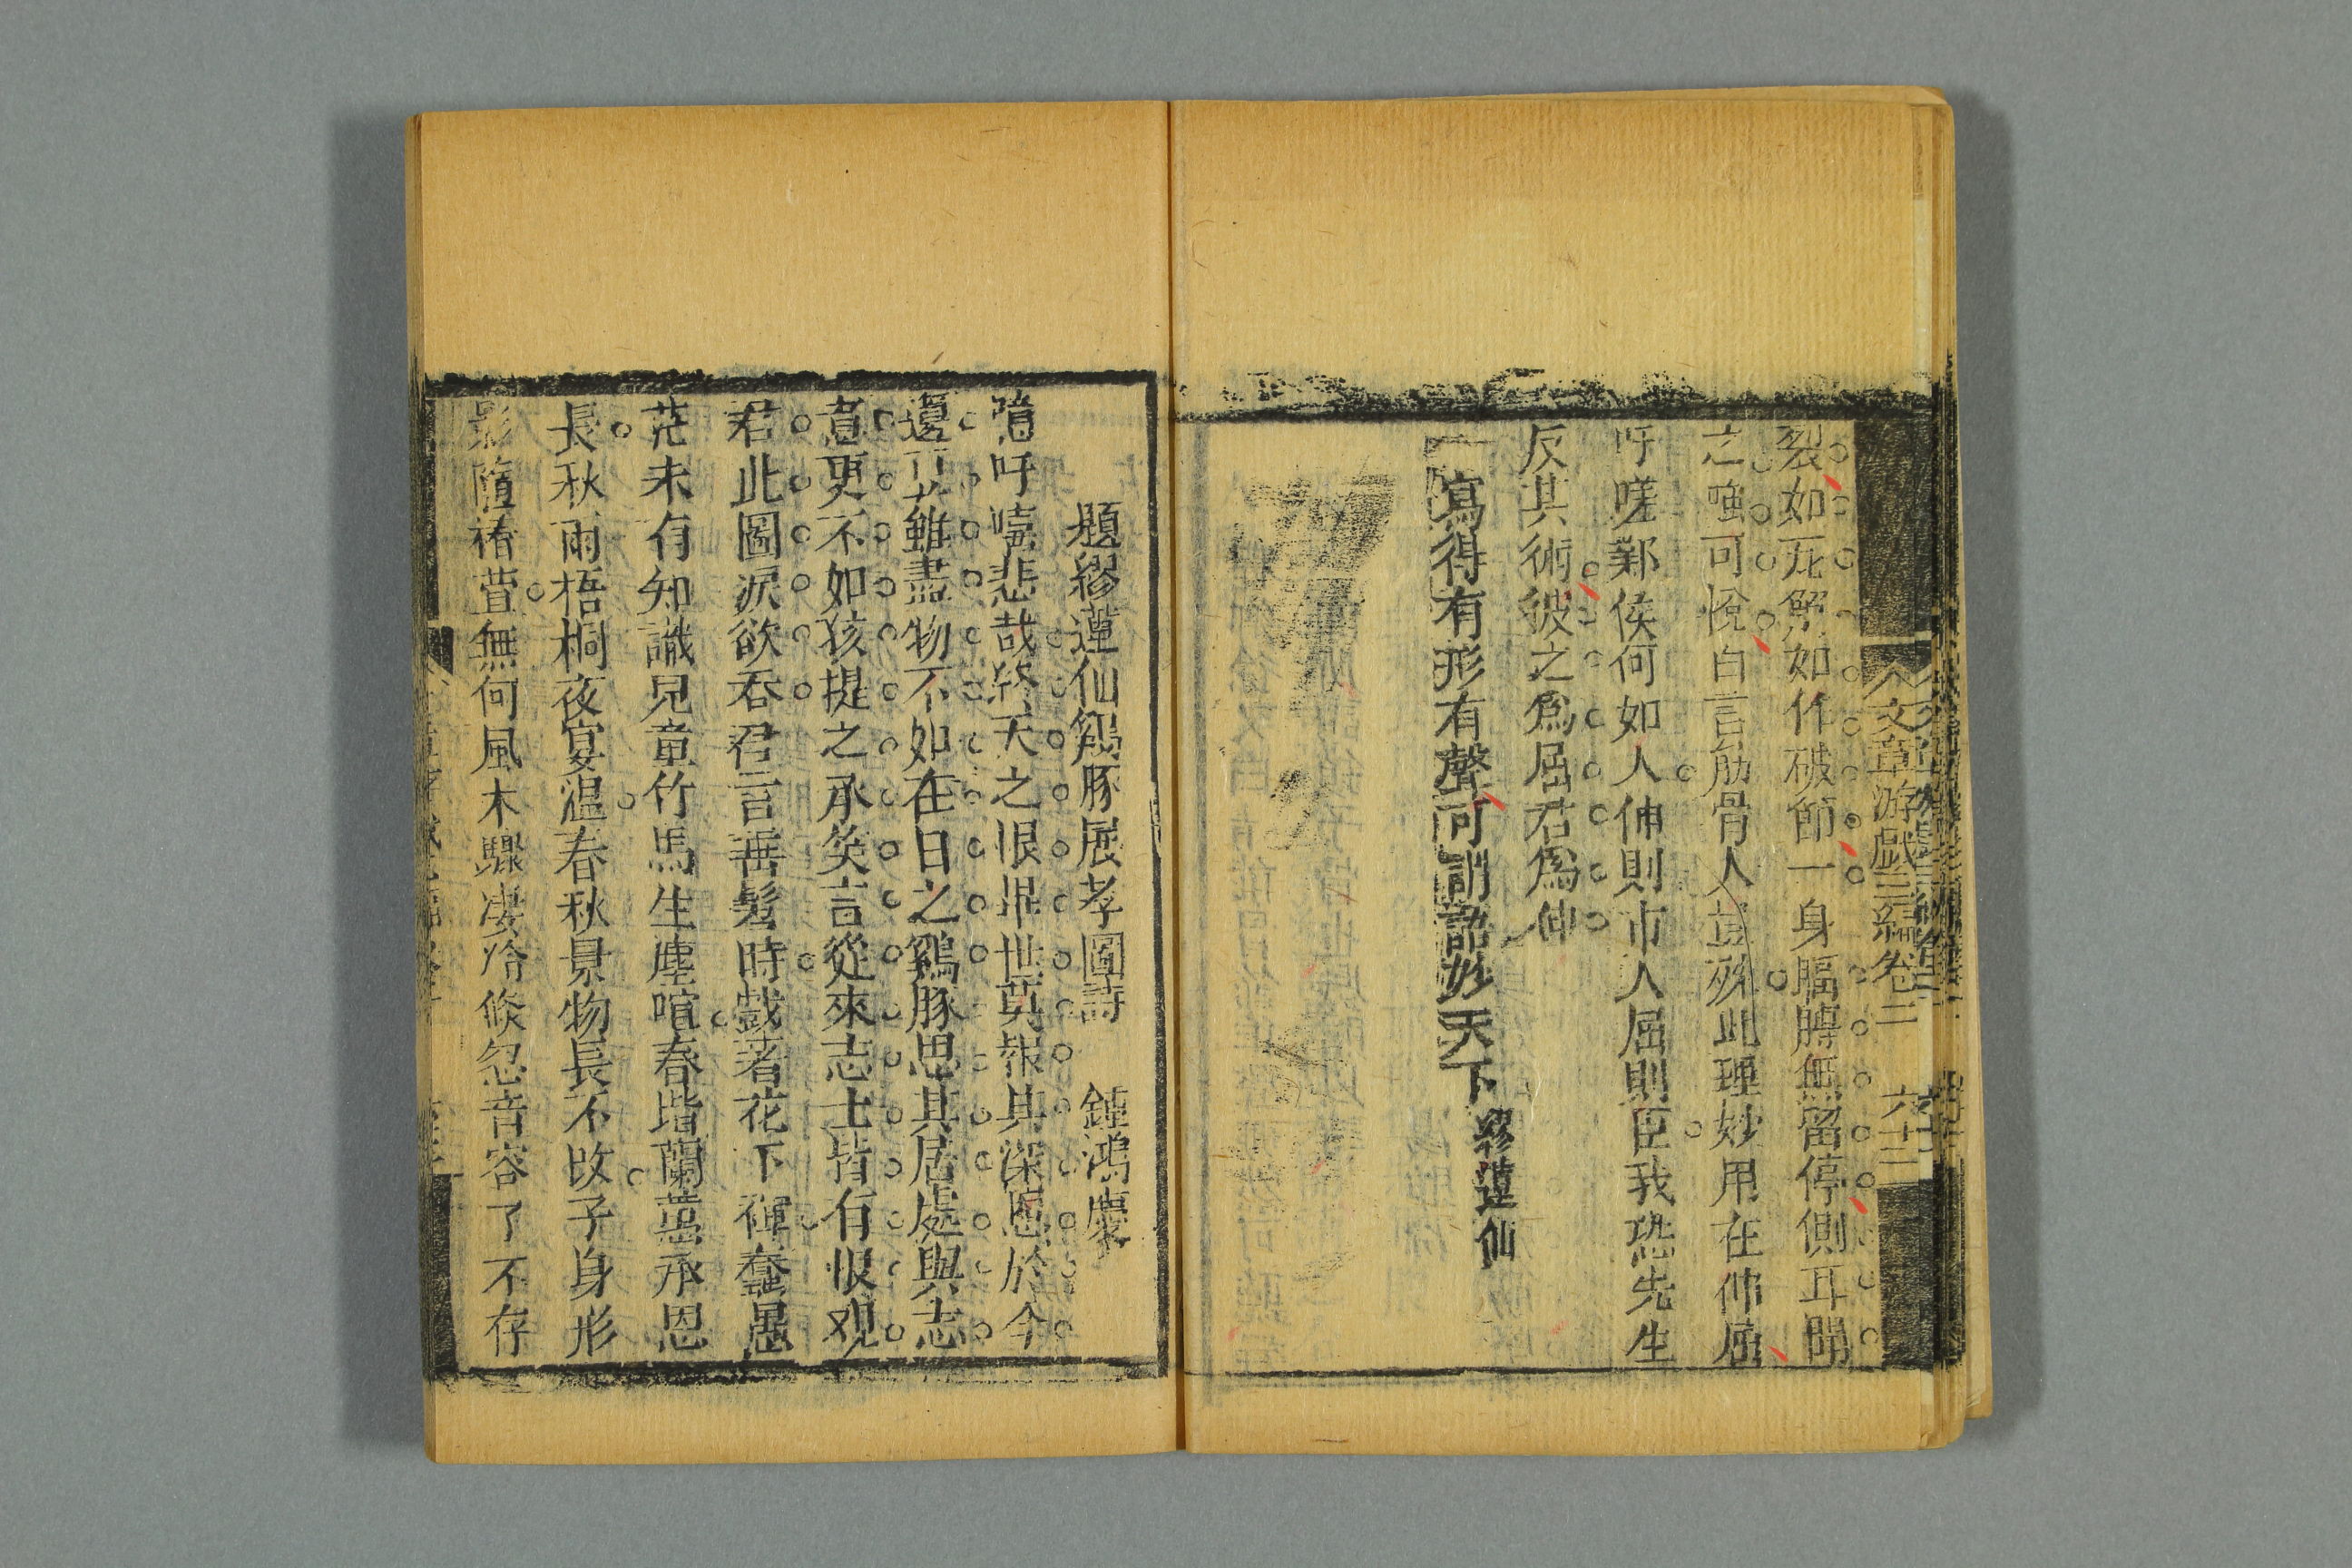 文章游戲三編卷三 六十二
裂如瓦解如作破節一身腷膊無留停側耳聞
之噁可悅自言筋骨人豈殊此理妙用在伸屈
吁嗟鄴侯何如人伸則帝人屈則臣我恐先生
反其術彼之為屈君為伸
寫得有形有聲可謂語妙天下繆蓮仙
題繆蓮仙鷄豚展孝圖詩 鍾鴻慶
噫吁嘻悲哉終天之恨畢世莫報其深恩於今
籩豆薦雖盡物不如在日之鷄豚思其居處與志
意更不如孩提之承笑言從來志士皆有恨观
君此圖淚欲吞君言垂髫時戲著花下褌蠢愚
茫未有知識兒童竹馬生塵喧春堦蘭蕙承恩
長秋雨梧桐夜宴溫春秋景物長不改子身形
影隨椿萱無何風木驟凄冷倏忽音容了不存